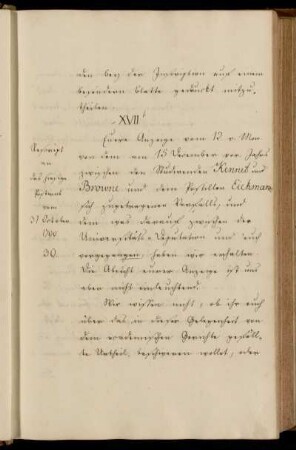 den bey der Inscription auf einem
besondern Blatte gedruckt mitzu-
theilen.
XVII
Rescript
an
das hiesige
Postamt
vom
31 October
1799
30.
Euere Anzeige vom 13 v. Mon.
von dem am 15 December vor. Jahrs
zwischen den Studirenden Kinnit und
Browne und dem Postillon Eickman
sich zugetragenen Vorfalls, und
dem was darauf zwischen der
Universitäts-Deputation und euch
vorgegangen, haben wir erhalten
Die Absicht eurer Anzeige ist uns
aber nicht einleuchtend.
Wir wissen nicht, ob ihr euch
über das in dieser Gelegenheit von
dem academischen Gerichte gefäll-
te Urtheil, beschweren wollet, oder